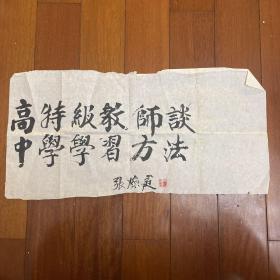 高特級教師談
中學學習方法
張懷